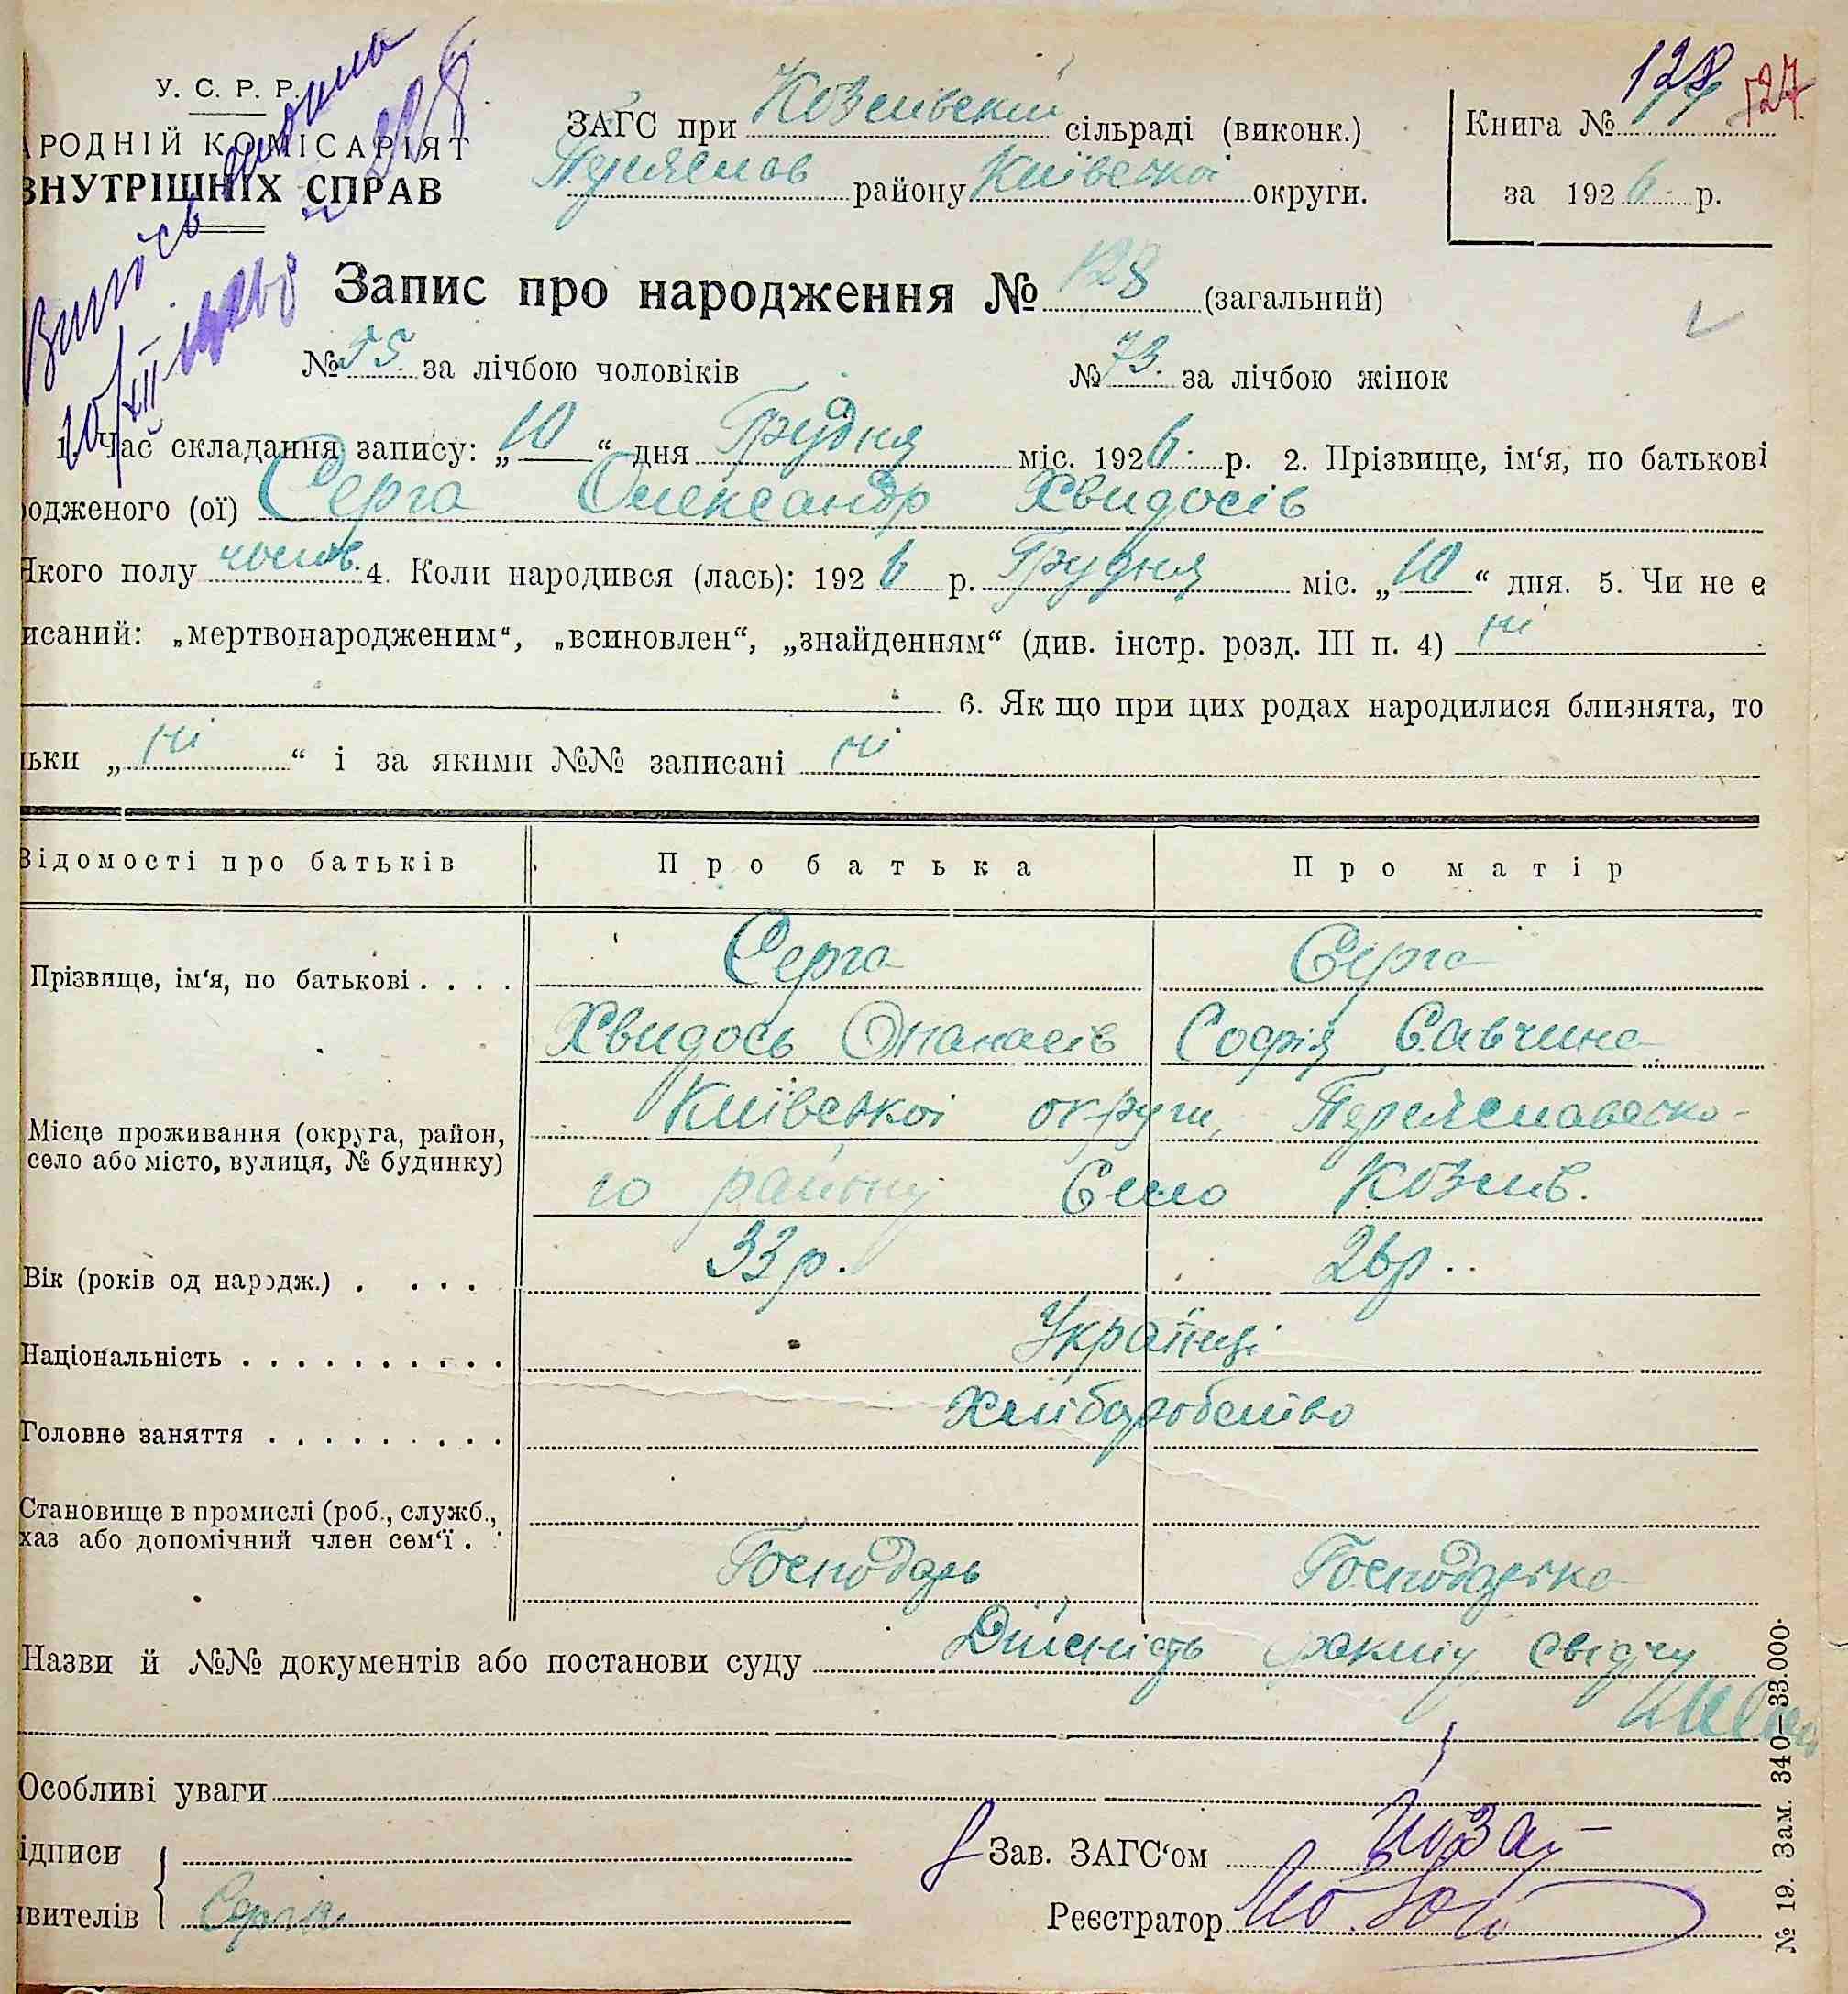 У. С. Р. Р.
АРОДНІЙ КОМІСАРІЯТ
ВНУТРІШНІХ СПРАВ
Випись видана
10/XII
ЗАГС при Козлівскій сільраді (виконк.)
Переяслав району Київської округи.
Книга №
128 127
за 1926 р.
Запис про народження № 128 (загальний)
№ 55. за лічбою чоловіків № 73. за лічбою жінок
1. Час складання запису: „10“ дня Грудня міс. 1926 р. 2. Прізвище, ім'я, по батькові
одженого (ої) Серга Олександр Хвидосів
Якого полу чолов. 4. Коли народився (лась): 1926 р. Грудня міс. „10“ дня. 5. Чи не є
исаний: „мертвонародженим“, „всиновлен“, „знайденням“ (див. інстр. розд. III п. 4) ні
6. Як що при цих родах народилися близнята, то
ьки „ні“ і за якими №№ записані ні
Відомості про батьків Про батька Про матір
Прізвище, ім'я, по батькові . . . . Серга Серга
Хвидось Опанасів Софія Савчина
Місце проживання (округа, район, село або місто, вулиця, № будинку) Київської округи, Переяславсько-
го району Село Козлів.
Вік (років од народж.) . . . . 33 р. 26 р.
Національність . . . . . . . . . . . Українці
Головне заняття . . . . . . . . . Хліборобство
Становище в промислі (роб., служб.,
хаз або допомічний член сем'ї . Господарь Господарка
Назви й №№ документів або постанови суду Дійсність факту свідчу
Особливі уваги
ідписи Зав. ЗАГС'ом
явителів Серга Реєстратор
№ 19. Зам. 340—33.000.